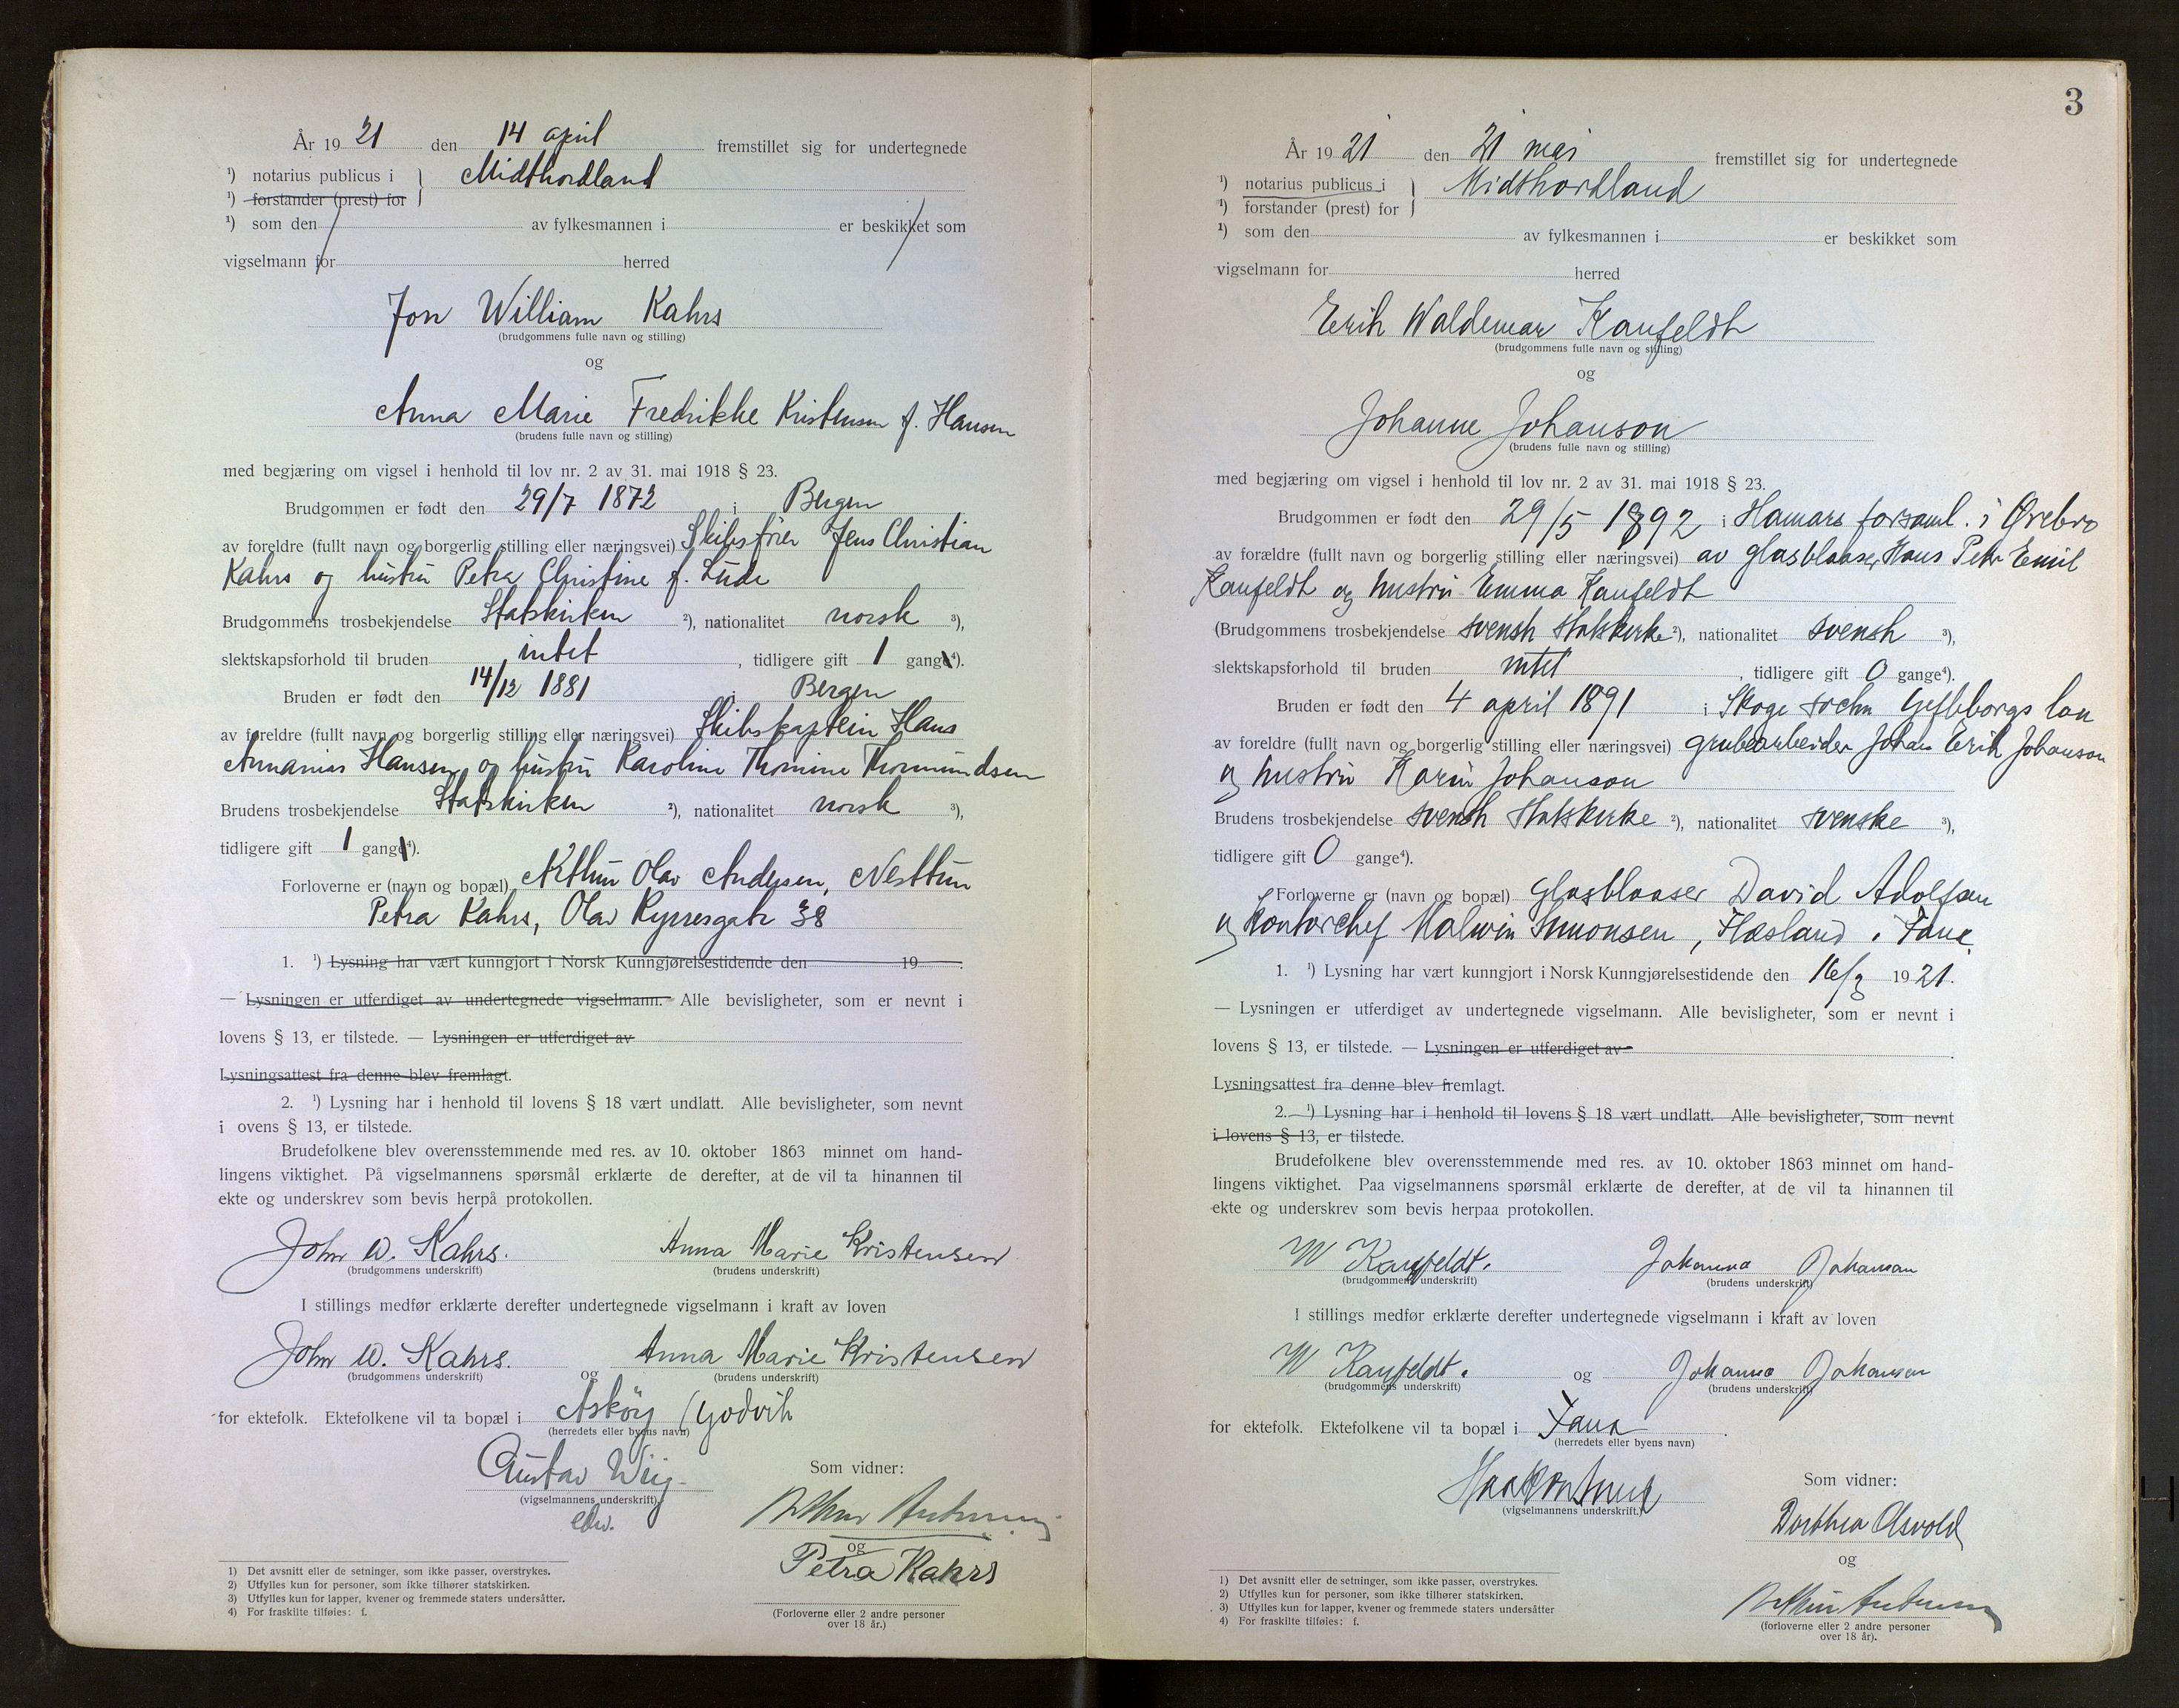 År 19 21 den 14 april fremstillet sig for undertegnede
¹) notarius publicus i } Midthordland
¹) forstander (prest) for
¹) som den av fylkesmannen i er beskikket som
vigselmann for herred
Jon William Kahrs
(brudgommens fulle navn og stilling)
og
Anna Marie Fredrikke Kristensen f. Hansen
(brudens fulle navn og stilling)
med begjæring om vigsel i henhold til lov nr. 2 av 31. mai 1918 § 23.
Brudgommen er født den 29/7 1872 i Bergen
av foreldre (fullt navn og borgerlig stilling eller næringsvei) Skibsfører Jens Christian
Kahrs og hustru Petra Christine f. Lude
Brudgommens trosbekjendelse Statskirken ²), nationalitet norsk ³),
slektskapsforhold til bruden intet , tidligere gift 1 gang⁴).
Bruden er født den 14/12 1881 i Bergen
av foreldre (fullt navn og borgerlig stilling eller næringsvei) Skibskaptein Hans
Annanias Hansen og hustru Karoline Thomine Thormundsen
Brudens trosbekjendelse Statskirken ²), nationalitet norsk ³),
tidligere gift 1 gang⁴).
Forloverne er (navn og bopæl) Arthur Olav Andersen, Nesttun
Petra Kahrs, Olav Kyrresgate 38
1. ¹) Lysning har vært kunngjort i Norsk Kunngjørelsestidende den 19 .
— Lysningen er utferdiget av undertegnede vigselmann. Alle bevisligheter, som er nevnt i
lovens § 13, er tilstede. — Lysningen er utferdiget av
Lysningsattest fra denne blev fremlagt.
2. ¹) Lysning har i henhold til lovens § 18 vært undlatt. Alle bevisligheter, som nevnt
i ovens § 13, er tilstede.
Brudefolkene blev overensstemmende med res. av 10. oktober 1863 minnet om hand-
lingens viktighet. På vigselmannens spørsmål erklærte de derefter, at de vil ta hinannen til
ekte og underskrev som bevis herpå protokollen.
John W. Kahrs. Anna Marie Kristensen
(brudgommens underskrift) (brudens underskrift)
I stillings medfør erklærte derefter undertegnede vigselmann i kraft av loven
John W. Kahrs. og Anna Marie Kristensen
(brudgommens underskrift) (brudens underskrift)
for ektefolk. Ektefolkene vil ta bopæl i Askøy (Godvik
(herredets eller byens navn)
Gustav Wiig
(vigselmannens underskrift)
edw.
Som vidner:
Arthur Andersen
og
Petra Kahrs
(Forloverne eller 2 andre personer
over 18 år.)
1) Det avsnitt eller de setninger, som ikke passer, overstrykes.
2) Utfylles kun for personer, som ikke tilhører statskirken.
3) Utfylles kun for lapper, kvener og fremmede staters undersåtter.
4) For fraskilte tilføies: f.
3
År 19 21 den 21 mai fremstillet sig for undertegnede
¹) notarius publicus i } Midthordland
¹) forstander (prest) for
¹) som den av fylkesmannen i er beskikket som
vigselmann for herred
Erik Waldemar Kanfeldt
(brudgommens fulle navn og stilling)
og
Johanne Johanson
(brudens fulle navn og stilling)
med begjæring om vigsel i henhold til lov nr. 2 av 31. mai 1918 § 23.
Brudgommen er født den 29/5 1892 i Hamars forsaml. i Ørebro
av forældre (fullt navn og borgerlig stilling eller næringsvei) av glasblaaser Hans Petr Emil
Kanfeldt og hustru Emma Kanfeldt
(Brudgommens trosbekjendelse svensk statskirke ²), nationalitet svensk ³),
slektskapsforhold til bruden intet , tidligere gift 0 gange⁴).
Bruden er født den 4 april 1891 i Skoge sokn Gefleborgs lan
av foreldre (fullt navn og borgerlig stilling eller næringsvei) grubearbeider Johan Erik Johanson
og hustru Karin Johanson
Brudens trosbekjendelse svensk statskirke ²), nationalitet svenske ³),
tidligere gift 0 gange⁴).
Forloverne er (navn og bopæl) Glasblaaser David Adolfsen
og kontorchef Malwin Simonsen, Flæsland i Fane
1. ¹) Lysning har vært kunngjort i Norsk Kunngjørelsestidende den 16/3 1921.
— Lysningen er utferdiget av undertegnede vigselmann. Alle bevisligheter, som er nevnt i
lovens § 13, er tilstede. — Lysningen er utferdiget av
Lysningsattest fra denne blev fremlagt.
2. ¹) Lysning har i henhold til lovens § 18 vært undlatt. Alle bevisligheter, som nevnt
i lovens § 13, er tilstede.
Brudefolkene blev overensstemmende med res. av 10. oktober 1863 minnet om hand-
lingens viktighet. Paa vigselmannens spørsmål erklærte de derefter, at de vil ta hinannen til
ekte og underskrev som bevis herpaa protokollen.
W Kanfeldt. Johanna Johanson
(brudgommens underskrift) (brudens underskrift)
I stillings medfør erklærte derefter undertegnede vigselmann i kraft av loven
W Kanfeldt. og Johanna Johanson
(brudgommens underskrift) (brudens underskrift)
for ektefolk. Ektefolkene vil ta bopæl i Fana .
(herredets eller byens navn)
(vigselmannens underskrift.)
Som vidner:
Dorthea Osvold
og
Arthur Andersen
(forloverne eller 2 andre personer
over 18 år).
1) Det avsnitt eller de setninger, som ikke passer, overstrykes.
2) Utfylles kun for personer, som ikke tilhører statskirken.
3) Utfylles kun for lapper, kvener og fremmede staters undersåtter
4) For fraskilte tilføies: f.